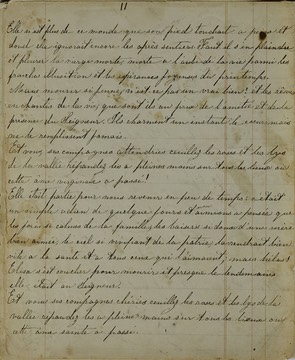 11
Elle n'est plus de ce monde que son pied touchait à peine et
dont elle ignorait encore les âpres sentiers. Faut-il s'en plaindre
et pleurer la vierge morte, morte à l'aube de la vie parmi les
franches illusions et les espérances du printemps.
Mourir si jeune, n'est-ce pas un vrai bien! et les
de la vie, que sont-ils au prix de l'amitié et de la
du Seigneur. Ils charment un instant le cœur mais
ne le remplissent jamais.
Et vous ses compagnes attendries cueillez les roses et les lys
de la vallée répandez les à pleines mains sur tous les lieux où
cette a passé!
Elle était partie pour nous revenir en peu de temps: c'était
un simple adieu de quelques jours et aimions à penser que
les joies si calmes de la famille, les baisers si doux d'une mère
bien aimée, le ciel si de la patrie la rendrait bien
vite à la santé et à tous ceux qui l'aimaient, mais hélas!
Elisa s'est couchée pour mourir et presque le lendemain
elle était au Seigneur.
Et vous ses compagnes chéries cueillez les roses et les lys de la
vallée répandez les à pleines mains sur tous les lieux où
cette âme sainte a passé.